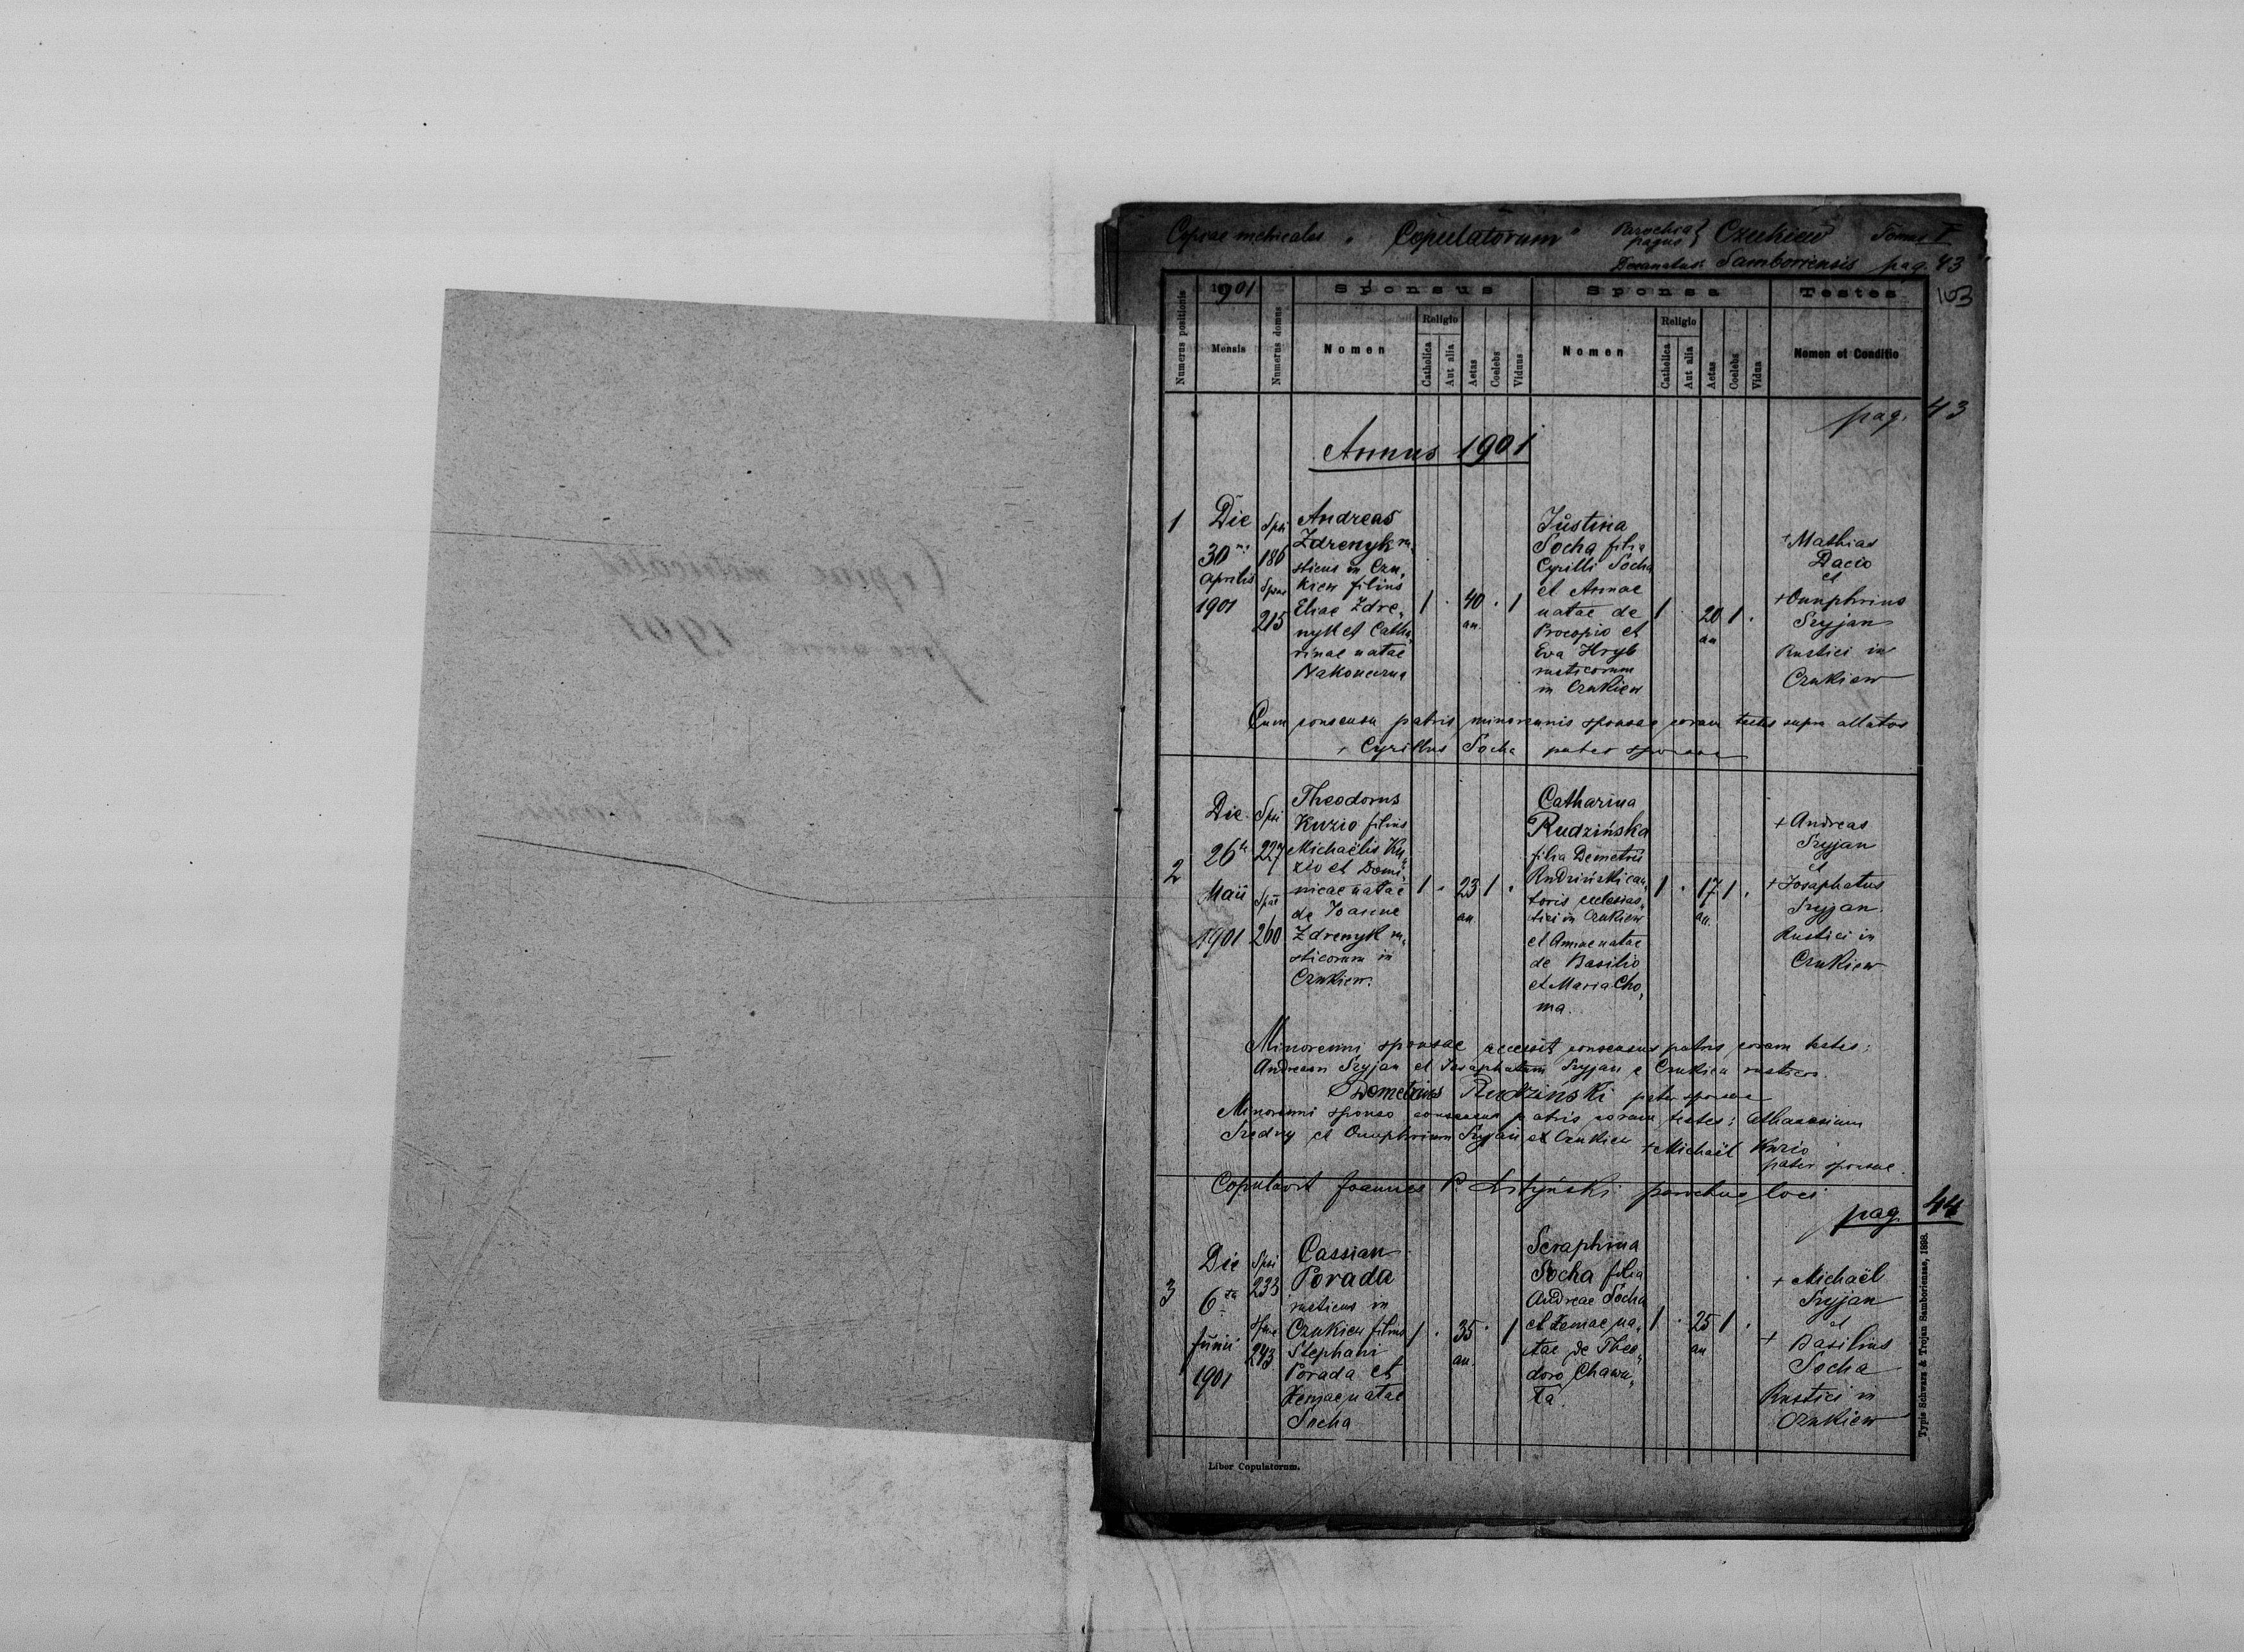 Copiae metricales "Copulatorum" Parochia pagus } Czukiew Tomus I
Decanatus: Samboriensis pag. 43
103
1901 Sponsus Sponsa Testes
Numerus positionis Mensis Numerus domus Nomen Religio Catholica Aut alia Aetas Coelebs Viduus Nomen Religio Catholica Aut alia Aetas Coelebs Vidua Nomen et Conditio
pag. 43
Annus 1901
1
Die
30
Aprilis
1901
Spsi
186
Spsae
215
Andreas
Zdrenyk ru„
sticus in Czu„
kiew filius
Eliae Zdre„
nyk et Catha„
rinae natae
Nakoneczna
1 . 40 . 1
an.
Justina
Socha filia
Cyrilli Socha
et Annae
natae de
Procopio et
Eva Hryb
rusticorum
in Czukiew
1 . 20 1 .
an
+ Mathias
Dacio
et
+ Onuphrius
Szyjan
Rustici in
Czukiew
Cum consensu patris minorennis sponsae coram testes supra allatos
+ Cyrillus Socha pater sponsae
2
Die
26
Maii
1901
Spsi
227
Spsae
260
Theodorus
Kuzio filius
Michaëlis Ku„
zio et Domi„
nicae natae
de Joanne
Zdrenyk ru„
sticorum in
Czukiew.
1 . 23 1 .
an.
Catharina
Rudzińska
filia Demetrii
Rudziński can„
toris ecclesias„
tici in Czukiew
et Annae natae
de Basilio
et Maria Cho„
ma.
1 . 17 1 .
an.
+ Andreas
Szyjan
et
+ Josaphatus
Szyjan.
Rustici in
Czukiew
Minorenni sponsae accessit consensus patris coram testes:
Andream Szyjan et Josaphatum Szyjan e Czukiew rusticos.
Demetrius Rudziński pater sponsae
Minorenni sponso consensus patris coram testes: Athanasium
Szedny et Onuphrium Szyjan ex Czukiew + Michaël Kuzio
pater sponsae.
Copulavit Joannes P. Lityński parochus loci
pag 44
3
Die
6ta
Junii
1901
Spsi
233
Spsae
243
Cassian
Porada
rusticus in
Czukiew filius
Stephani
Porada et
Xeniae natae
Socha
1 . 35 . 1
an.
Seraphina
Socha filia
Andreae Socha
et Xeniae na„
tae de Theo„
doro Chawu„
ta.
1 . 25 1 .
an
+ Michaël
Szyjan
et
+ Basilius
Socha
Rustici in
Czukiew
Liber Copulatorum.
Typis Schwarz & Trojan Samboriensae, 1898.